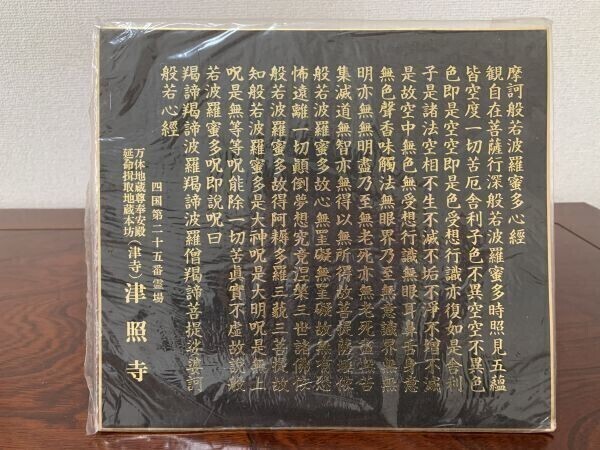 摩訶般若波羅蜜多心經
観自在菩薩行深般若波羅蜜多時照見五蘊
皆空度一切苦厄舎利子色不異空空不異色
色即是空空即是色受想行識亦復如是舎利
子是諸法空相不生不滅不垢不淨不增不減
是故空中無色無受想行識無眼耳鼻舌身意
無色聲香味觸法無眼界乃至無意識界無無
明亦無無明盡乃至無老死亦無老死盡無苦
集滅道無智亦無得以無所得故菩提薩埵依
般若波羅蜜多故心無罣礙無罣礙故無有恐
怖遠離一切顛倒夢想究竟涅槃三世諸佛依
般若波羅蜜多故得阿耨多羅三藐三菩提故
知般若波羅蜜多是大神呪是大明呪是無上
呪是無等等呪能除一切苦眞實不虚故説般
若波羅蜜多呪即説呪曰
羯諦羯諦波羅羯諦波羅僧羯諦菩提娑婆訶
般若心經
四国第二十五番霊場
万体地蔵尊奉安殿
延命揖取地蔵本坊
(津寺)津照寺